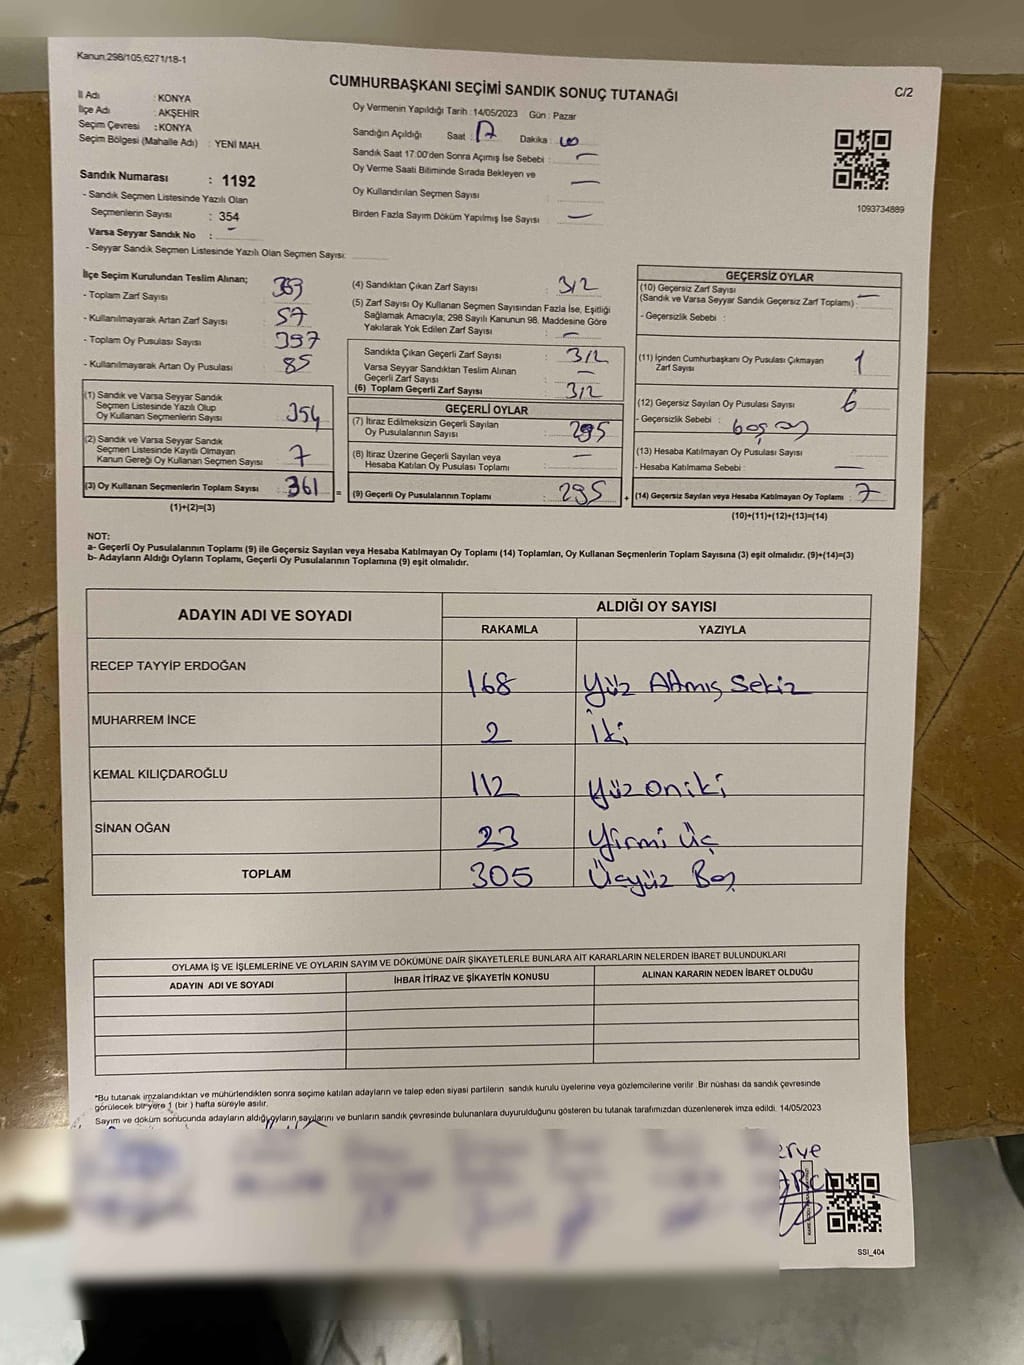 Kanun,298/105,6271/18-1
CUMHURBAŞKANI SEÇİMİ SANDIK SONUÇ TUTANAĞI
C/2
İl Adı : KONYA
İlçe Adı : AKŞEHİR
Seçim Çevresi : KONYA
Seçim Bölgesi (Mahalle Adı) : YENİ MAH.
Sandık Numarası : 1192
- Sandık Seçmen Listesinde Yazılı Olan
Seçmenlerin Sayısı : 354
Varsa Seyyar Sandık No : -
- Seyyar Sandık Seçmen Listesinde Yazılı Olan Seçmen Sayısı:
Oy Vermenin Yapıldığı Tarih : 14/05/2023 Gün : Pazar
Sandığın Açıldığı Saat : 17 Dakika : 00
Sandık Saat 17:00'den Sonra Açımış İse Sebebi : -
Oy Verme Saati Bitiminde Sırada Bekleyen ve -
Oy Kullandırılan Seçmen Sayısı :
Birden Fazla Sayım Döküm Yapılmış İse Sayısı : -
1093734889
İlçe Seçim Kurulundan Teslim Alınan;
- Toplam Zarf Sayısı : 393
- Kullanılmayarak Artan Zarf Sayısı : 57
- Toplam Oy Pusulası Sayısı : 397
- Kullanılmayarak Artan Oy Pusulası : 85
(1) Sandık ve Varsa Seyyar Sandık
Seçmen Listesinde Yazılı Olup
Oy Kullanan Seçmenlerin Sayısı : 354
(2) Sandık ve Varsa Seyyar Sandık
Seçmen Listesinde Kayıtlı Olmayan
Kanun Gereği Oy Kullanan Seçmen Sayısı : 7
(3) Oy Kullanan Seçmenlerin Toplam Sayısı : 361 =
(1)+(2)=(3)
(4) Sandıktan Çıkan Zarf Sayısı : 312
(5) Zarf Sayısı Oy Kullanan Seçmen Sayısından Fazla İse, Eşitliği
Sağlamak Amacıyla; 298 Sayılı Kanunun 98. Maddesine Göre
Yakılarak Yok Edilen Zarf Sayısı : -
Sandıkta Çıkan Geçerli Zarf Sayısı : 312
Varsa Seyyar Sandıktan Teslim Alınan
Geçerli Zarf Sayısı : -
(6) Toplam Geçerli Zarf Sayısı : 312
GEÇERLİ OYLAR
(7) İtiraz Edilmeksizin Geçerli Sayılan
Oy Pusulalarının Sayısı : 295
(8) İtiraz Üzerine Geçerli Sayılan veya
Hesaba Katılan Oy Pusulası Toplamı : -
(9) Geçerli Oy Pusulalarının Toplamı : 295 +
GEÇERSİZ OYLAR
(10) Geçersiz Zarf Sayısı
(Sandık ve Varsa Seyyar Sandık Geçersiz Zarf Toplamı) : -
- Geçersizlik Sebebi :
(11) İçinden Cumhurbaşkanı Oy Pusulası Çıkmayan
Zarf Sayısı : 1
(12) Geçersiz Sayılan Oy Pusulası Sayısı : 6
- Geçersizlik Sebebi : boş oy
(13) Hesaba Katılmayan Oy Pusulası Sayısı :
- Hesaba Katılmama Sebebi : -
(14) Geçersiz Sayılan veya Hesaba Katılmayan Oy Toplamı : 7
(10)+(11)+(12)+(13)=(14)
NOT:
a- Geçerli Oy Pusulalarının Toplamı (9) ile Geçersiz Sayılan veya Hesaba Katılmayan Oy Toplamı (14) Toplamları, Oy Kullanan Seçmenlerin Toplam Sayısına (3) eşit olmalıdır. (9)+(14)=(3)
b- Adayların Aldığı Oyların Toplamı, Geçerli Oy Pusulalarının Toplamına (9) eşit olmalıdır.
ADAYIN ADI VE SOYADI ALDIĞI OY SAYISI
RAKAMLA YAZIYLA
RECEP TAYYİP ERDOĞAN 168 Yüz Altmış Sekiz
MUHARREM İNCE 2 İki
KEMAL KILIÇDAROĞLU 112 Yüz oniki
SİNAN OĞAN 23 Yirmi Üç
TOPLAM 305 Üçyüz Beş
OYLAMA İŞ VE İŞLEMLERİNE VE OYLARIN SAYIM VE DÖKÜMÜNE DAİR ŞİKAYETLERLE BUNLARA AİT KARARLARIN NELERDEN İBARET BULUNDUKLARI
ADAYIN ADI VE SOYADI İHBAR İTİRAZ VE ŞİKAYETİN KONUSU ALINAN KARARIN NEDEN İBARET OLDUĞU
*Bu tutanak imzalandıktan ve mühürlendikten sonra seçime katılan adayların ve talep eden siyasi partilerin sandık kurulu üyelerine veya gözlemcilerine verilir. Bir nüshası da sandık çevresinde
görülecek bir yere 1 (bir ) hafta süreyle asılır.
Sayım ve döküm sonucunda adayların aldığı oyların sayılarını ve bunların sandık çevresinde bulunanlara duyurulduğunu gösteren bu tutanak tarafımızdan düzenlenerek imza edildi. 14/05/2023
erve
SSI_404